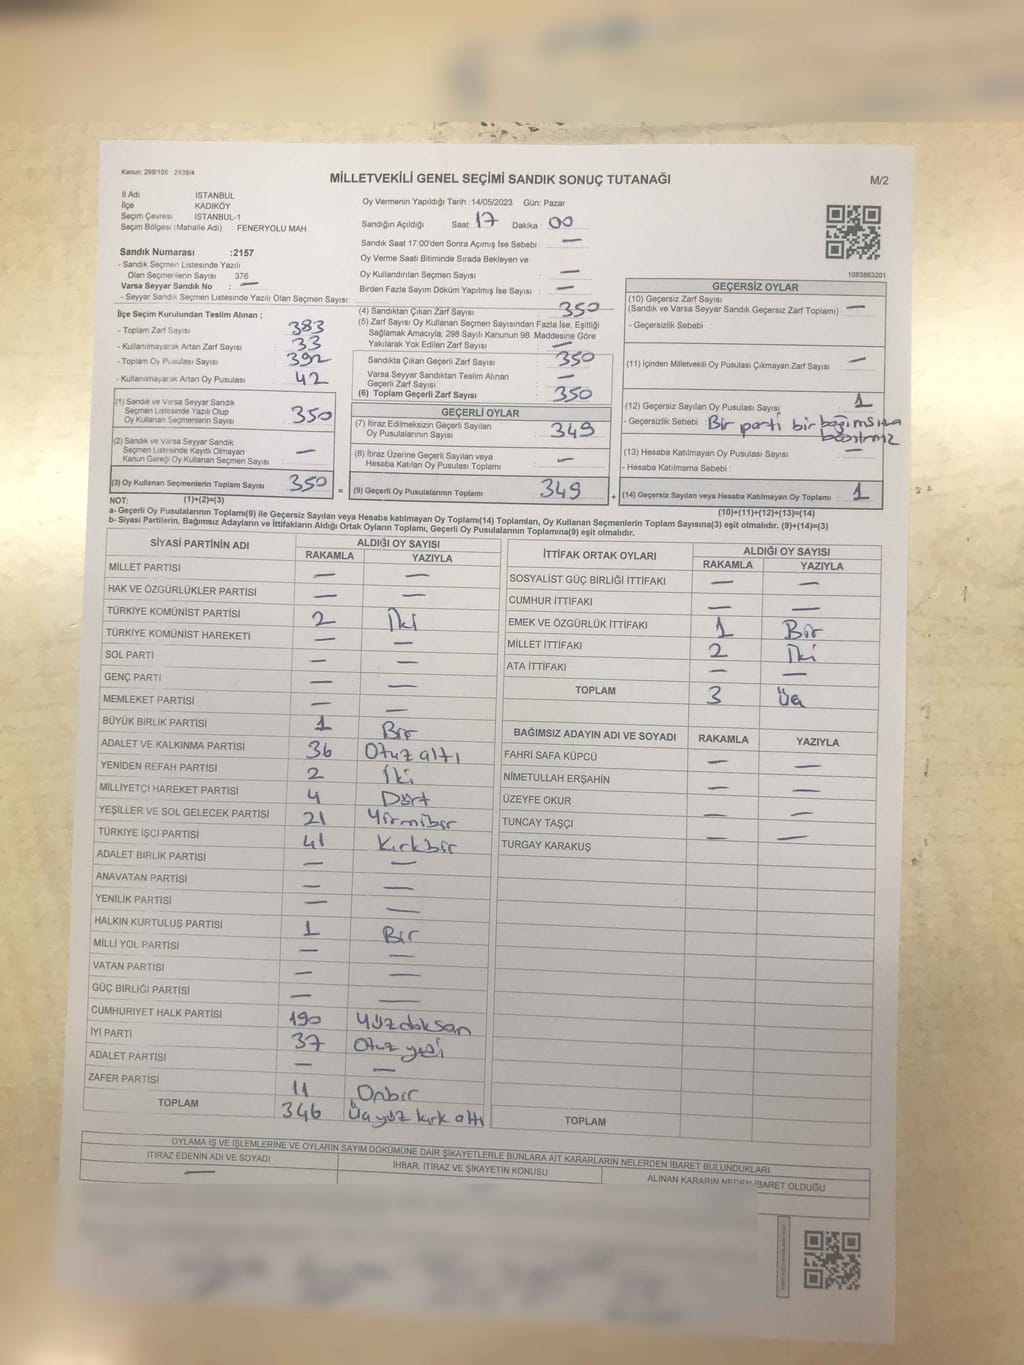 Kanun: 298/105 2839/4
MİLLETVEKİLİ GENEL SEÇİMİ SANDIK SONUÇ TUTANAĞI
M/2
İl Adı İSTANBUL
İlçe KADIKÖY
Seçim Çevresi İSTANBUL-1
Seçim Bölgesi (Mahalle Adı) FENERYOLU MAH.
Oy Vermenin Yapıldığı Tarih :14/05/2023 Gün: Pazar
Sandığın Açıldığı Saat: 17 Dakika: 00
Sandık Saat 17:00'den Sonra Açımış İse Sebebi : —
Oy Verme Saati Bitiminde Sırada Bekleyen ve
Oy Kullandırılan Seçmen Sayısı : —
Birden Fazla Sayım Döküm Yapılmış İse Sayısı : —
Sandık Numarası :2157
- Sandık Seçmen Listesinde Yazılı
Olan Seçmenlerin Sayısı 376
Varsa Seyyar Sandık No : —
- Seyyar Sandık Seçmen Listesinde Yazılı Olan Seçmen Sayısı:
İlçe Seçim Kurulundan Teslim Alınan ;
- Toplam Zarf Sayısı : 383
- Kullanılmayarak Artan Zarf Sayısı : 33
- Toplam Oy Pusulası Sayısı : 392
- Kullanılmayarak Artan Oy Pusulası : 42
(1) Sandık ve Varsa Seyyar Sandık
Seçmen Listesinde Yazılı Olup
Oy Kullanan Seçmenlerin Sayısı : 350
(2) Sandık ve Varsa Seyyar Sandık
Seçmen Listesinde Kayıtlı Olmayan
Kanun Gereği Oy Kullanan Seçmen Sayısı : —
(3) Oy Kullanan Seçmenlerin Toplam Sayısı : 350
(4) Sandıktan Çıkan Zarf Sayısı : 350
(5) Zarf Sayısı Oy Kullanan Seçmen Sayısından Fazla İse, Eşitliği
Sağlamak Amacıyla; 298 Sayılı Kanunun 98. Maddesine Göre
Yakılarak Yok Edilen Zarf Sayısı : —
Sandıkta Çıkan Geçerli Zarf Sayısı : 350
Varsa Seyyar Sandıktan Teslim Alınan
Geçerli Zarf Sayısı : —
(6) Toplam Geçerli Zarf Sayısı : 350
GEÇERLİ OYLAR
(7) İtiraz Edilmeksizin Geçerli Sayılan
Oy Pusulalarının Sayısı : 349
(8) İtiraz Üzerine Geçerli Sayılan veya
Hesaba Katılan Oy Pusulası Toplamı : —
= (9) Geçerli Oy Pusulalarının Toplamı : 349
1083863201
GEÇERSİZ OYLAR
(10) Geçersiz Zarf Sayısı
(Sandık ve Varsa Seyyar Sandık Geçersiz Zarf Toplamı) : —
- Geçersizlik Sebebi :
(11) İçinden Milletvekili Oy Pusulası Çıkmayan Zarf Sayısı : —
(12) Geçersiz Sayılan Oy Pusulası Sayısı : 1
- Geçersizlik Sebebi : Bir parti bir bağımsıza
(13) Hesaba Katılmayan Oy Pusulası Sayısı : —
- Hesaba Katılmama Sebebi :
+ (14) Geçersiz Sayılan veya Hesaba Katılmayan Oy Toplamı : 1
NOT: (1)+(2)=(3)
(10)+(11)+(12)+(13)=(14)
a- Geçerli Oy Pusulalarının Toplamı(9) ile Geçersiz Sayılan veya Hesaba katılmayan Oy Toplamı(14) Toplamları, Oy Kullanan Seçmenlerin Toplam Sayısına(3) eşit olmalıdır. (9)+(14)=(3)
b- Siyasi Partilerin, Bağımsız Adayların ve İttifakların Aldığı Ortak Oyların Toplamı, Geçerli Oy Pusulalarının Toplamına(9) eşit olmalıdır.
SİYASİ PARTİNİN ADI ALDIĞI OY SAYISI
RAKAMLA YAZIYLA
MİLLET PARTİSİ — —
HAK VE ÖZGÜRLÜKLER PARTİSİ — —
TÜRKİYE KOMÜNİST PARTİSİ 2 İki
TÜRKİYE KOMÜNİST HAREKETİ — —
SOL PARTİ — —
GENÇ PARTİ — —
MEMLEKET PARTİSİ — —
BÜYÜK BİRLİK PARTİSİ 1 Bir
ADALET VE KALKINMA PARTİSİ 36 Otuz altı
YENİDEN REFAH PARTİSİ 2 İki
MİLLİYETÇİ HAREKET PARTİSİ 4 Dört
YEŞİLLER VE SOL GELECEK PARTİSİ 21 Yirmibir
TÜRKİYE İŞÇİ PARTİSİ 41 Kırkbir
ADALET BİRLİK PARTİSİ — —
ANAVATAN PARTİSİ — —
YENİLİK PARTİSİ — —
HALKIN KURTULUŞ PARTİSİ 1 Bir
MİLLİ YOL PARTİSİ — —
VATAN PARTİSİ — —
GÜÇ BİRLİĞİ PARTİSİ — —
CUMHURİYET HALK PARTİSİ 190 Yüzdoksan
İYİ PARTİ 37 Otuz yedi
ADALET PARTİSİ — —
ZAFER PARTİSİ 11 Onbir
TOPLAM 346 Üçyüz kırk altı
İTTİFAK ORTAK OYLARI ALDIĞI OY SAYISI
RAKAMLA YAZIYLA
SOSYALİST GÜÇ BİRLİĞİ İTTİFAKI — —
CUMHUR İTTİFAKI — —
EMEK VE ÖZGÜRLÜK İTTİFAKI 1 Bir
MİLLET İTTİFAKI 2 İki
ATA İTTİFAKI — —
TOPLAM 3 Üç
BAĞIMSIZ ADAYIN ADI VE SOYADI RAKAMLA YAZIYLA
FAHRİ SAFA KÜPCÜ — —
NİMETULLAH ERŞAHİN — —
ÜZEYFE OKUR — —
TUNCAY TAŞÇI — —
TURGAY KARAKUŞ
TOPLAM
OYLAMA İŞ VE İŞLEMLERİNE VE OYLARIN SAYIM DÖKÜMÜNE DAİR ŞİKAYETLERLE BUNLARA AİT KARARLARIN NELERDEN İBARET BULUNDUKLARI
İTİRAZ EDENİN ADI VE SOYADI
İHBAR, İTİRAZ VE ŞİKAYETİN KONUSU
ALINAN KARARIN NEDEN İBARET OLDUĞU
—